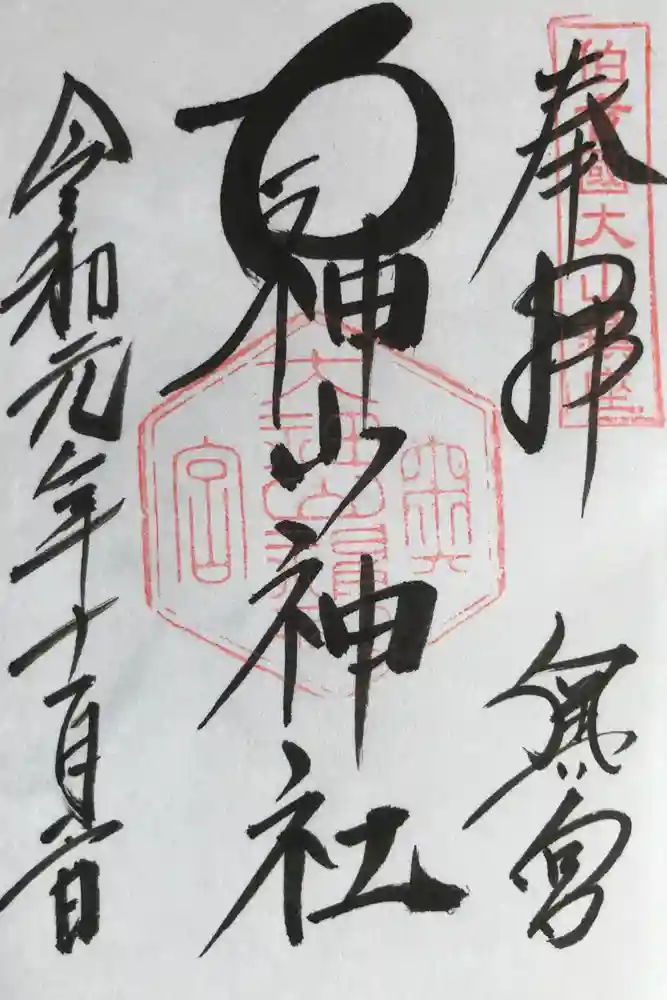 伯耆國大山鎮座
奉拝
奥宮
大神山神社
大神山神社
奥宮
令和元年十一月六日